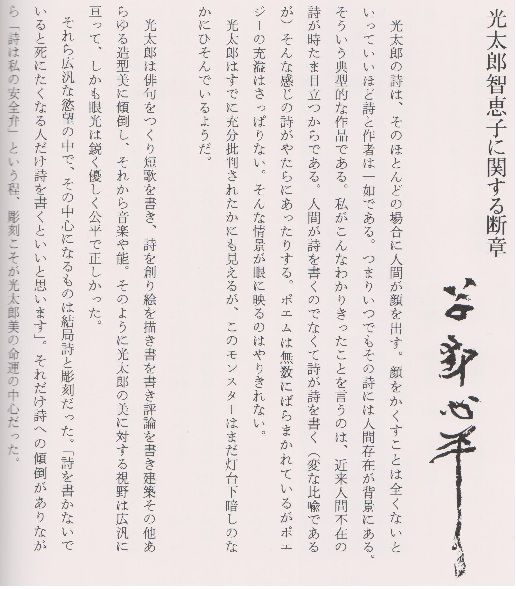 光太郎智恵子に関する断章
草野心平
光太郎の詩は、そのほとんどの場合に人間が顔を出す。顔をかくすことは全くないと
いっていいほど詩と作者は一如である。つまりいつでもその詩には人間存在が背景にある。
そういう典型的な作品である。私がこんなわかりきったことを言うのは、近来人間不在の
詩が時たま目立つからである。人間が詩を書くのでなくて詩が詩を書く（変な比喩である
が）そんな感じの詩がやたらにあったりする。ポエムは無数にばらまかれているがポエ
ジーの充溢はさっぱりない。そんな情景が眼に映るのはやりきれない。
光太郎はすでに充分批判されたかにも見えるが、このモンスターはまだ灯台下暗しのな
かにひそんでいるようだ。
光太郎は俳句をつくり短歌を書き、詩を創り絵を描き書を書き評論を書き建築その他あ
らゆる造型美に傾倒し、それから音楽や能。そのように光太郎の美に対する視野は広汎に
亘って、しかも眼光は鋭く優しく公平で正しかった。
それら広汎な慾望の中で、その中心になるものは結局詩と彫刻だった。「詩を書かないで
いると死にたくなる人だけ詩を書くといいと思います」。それだけ詩への傾倒がありなが
ら「詩は私の安全弁」という程、彫刻こそが光太郎美の命運の中心だった。